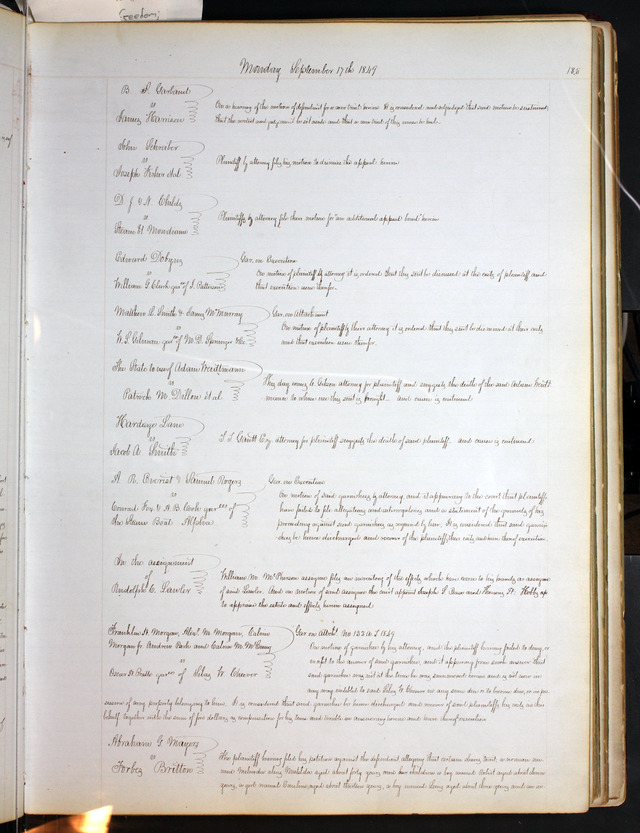 Freedom;
Monday September 17th 1849
186
B. S. Garland
vs
James Harrison
On a hearing of the motion of defendant for a new trial herein It is considered and adjudged that said motion be sustained,
that the verdict and judgment be set aside and that a new trial of this cause be had.
John Schreiber
vs
Joseph Fisher et al
Plaintiff by attorney files his motion to dismiss the appeal herein
D. J & N. Childs
vs
Steam Bt Mondiana
Plaintiffs by attorney file their motion for an additional appeal bond herein
Edward Dobyns
vs
William G. Clark garn of J. Patterson
Gar. on Execution
On motion of plaintiff by attorney it is ordered that this suit be dismissed at the costs of plaintiff and
that execution issue therefor.
Matthew R. Smith & James McMurray
vs
W. S. Gilman garn of M. D. Springer &c
Gar. on Attachment
On motion of plaintiffs by their attorney it is ordered that this suit be dismissed at their costs
and that execution issue therefor.
The State to use of Adam Weidtmann
vs
Patrick M. Dillon et al
This day comes C. Gibson attorney for plaintiff and suggests the death of the said Adam Weidt-
mann to whose use this suit is brought. And cause is continued
Hardage Lane
vs
Jacob A. Smith
T. T. Gantt Esq. attorney for plaintiff suggests the death of said plaintiff. and cause is continued
A. R. Corcrist & Samuel Rogers
vs
Conrad Fox & A. B. Cook garnees of
the Steam Boat Alphia
Gar. on Execution
On motion of said garnishees by attorney and it appearing to the court that plaintiffs
have failed to file allegations and interrogatories and a statement of the grounds of his
proceeding against said garnishees as required by law, It is considered that said garnis-
hees be hence discharged and recover of the plaintiffs their costs and have thereof execution.
In the assignment
of
Rudolph C. Lawler
William M. McPherson assignee files an inventory of the effects which have come to his hands as assignee
of said Lawler. And on motion of said assignee the court appoint Joseph S. Pease and Thomas H. Holt
to appraise the estate and effects herein assigned.
Franklin H. Morgan, Alex. M. Morgan, Calvin
Morgan jr. Andrew Park and Calvin M. McClung
vs
Oscar H. Bristle garn of Silas W. Cheever
Gar on Attmt. No 153 to T 1849
On motion of garnishee by his attorney, and the plaintiffs having failed to deny or
except to the answer of said garnishee, and it appearing from such answer that
said garnishee was not at the time he was summoned herein and is not now in
any way indebted to said Silas W. Cheever in any sum due or to become due, or in pos-
session of any property belonging to him. It is considered that said garnishee be hence discharged and recover of said plaintiffs his costs in this
behalf, together with the sum of five dollars as compensation for his time and trouble in answering herein and have thereof execution
Abraham G. Mayers
vs
Forbes Britton
The plaintiff having filed his petition against the defendant alleging that certain slaves, to wit, a woman na-
med Melinda aged about forty years and her children a boy named Robert aged about eleven
years, a girl named Caroline, aged about thirteen years, a boy named Henry aged about three years and an in-